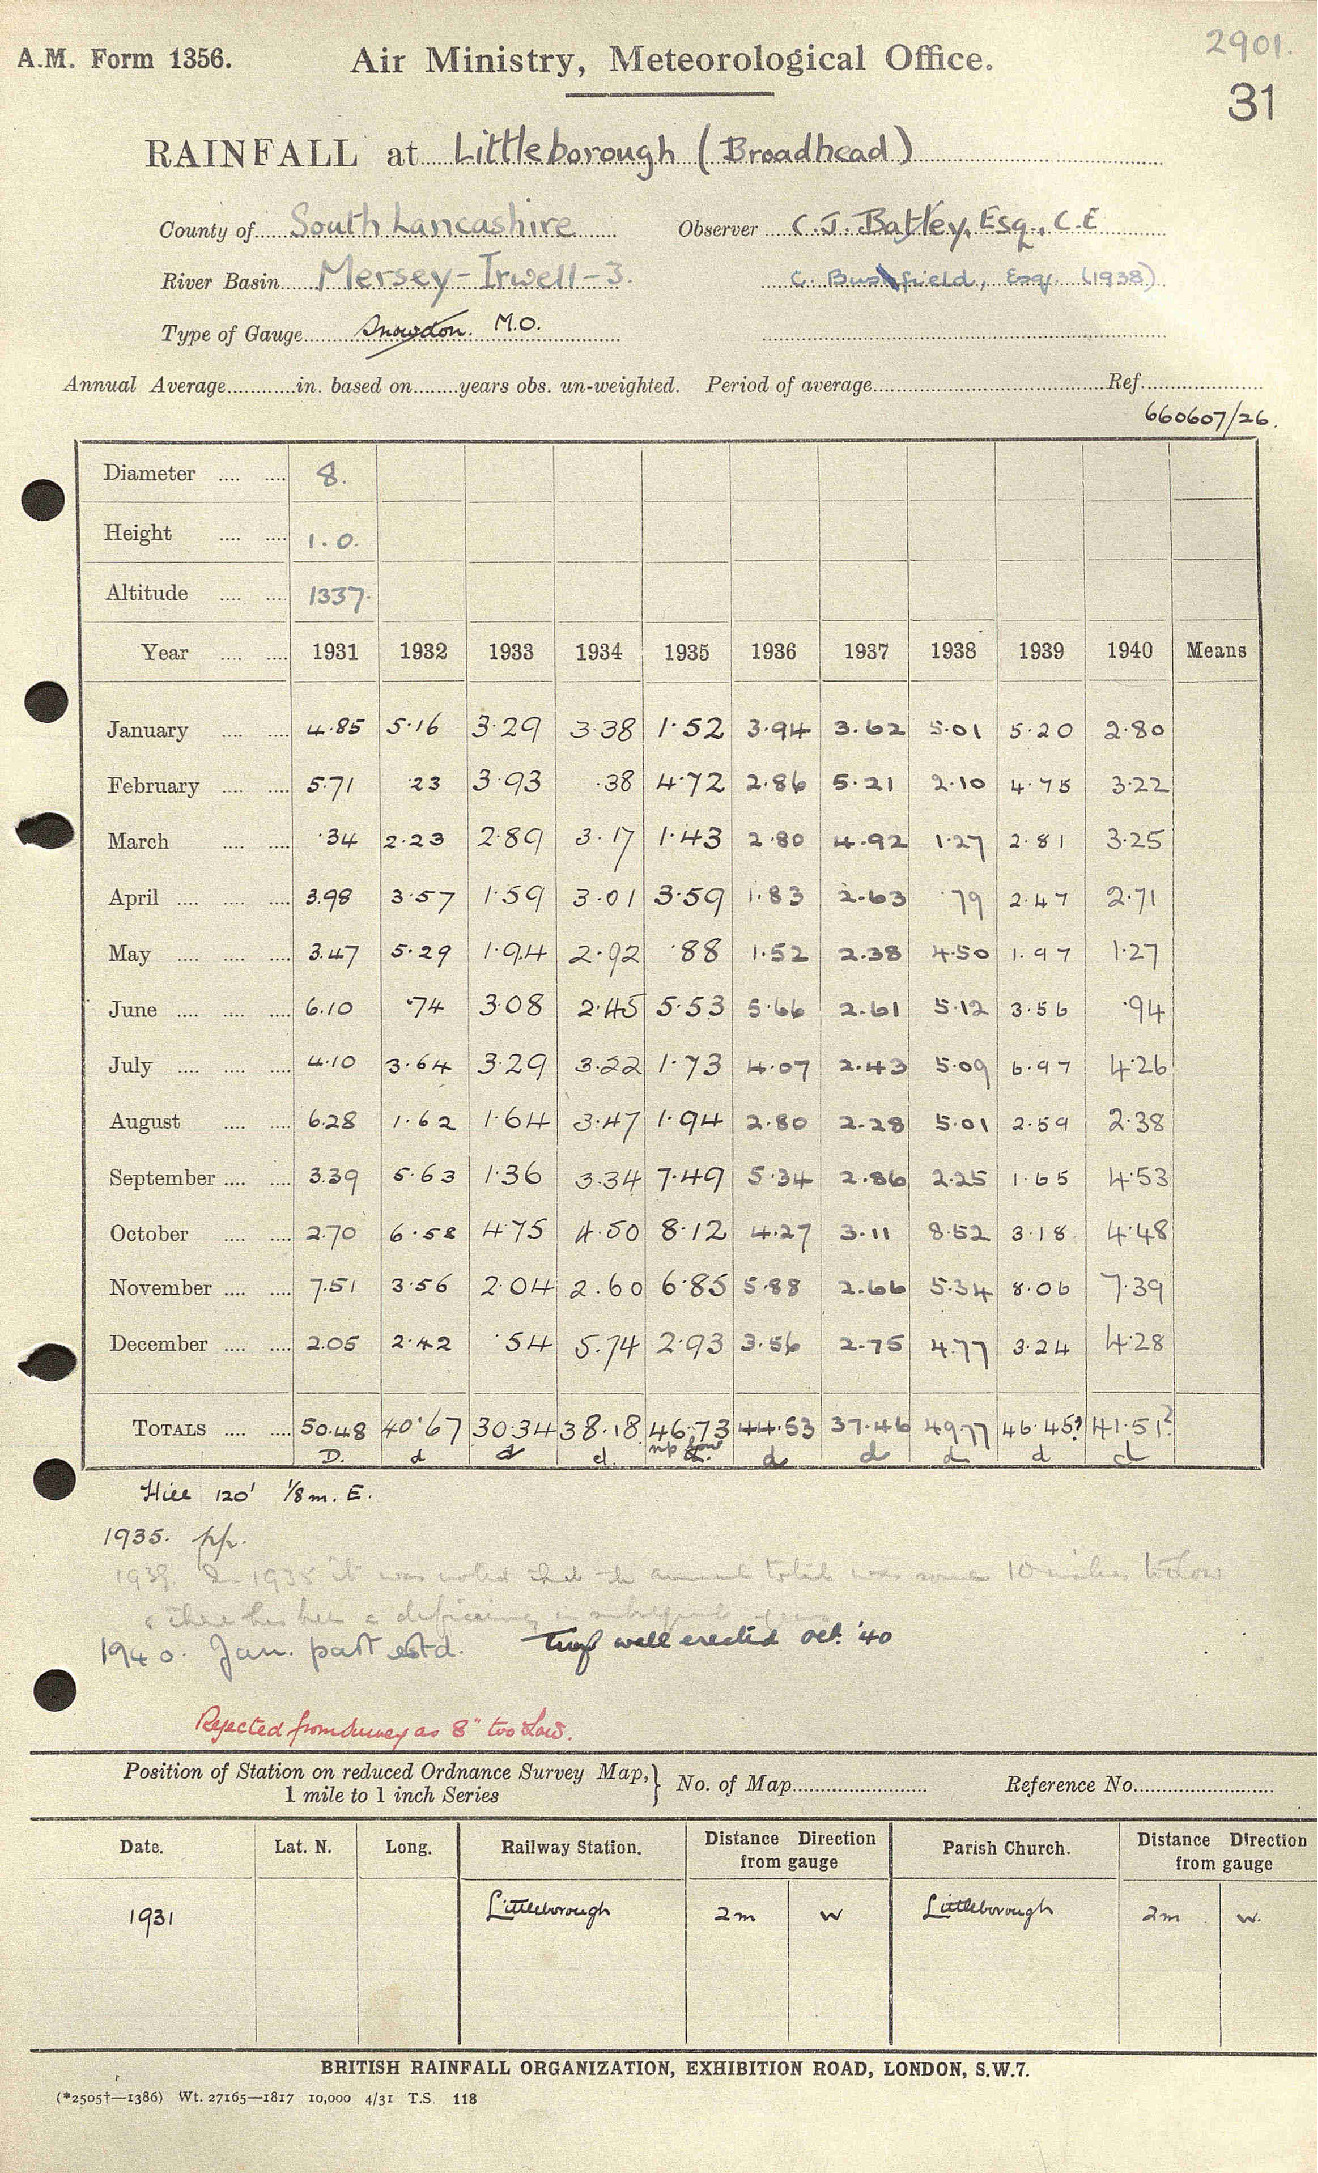 2901.
A.M. Form 1356. Air Ministry, Meteorological Office.
31
RAINFALL at Littleborough (Broadhead)
County of South Lancashire Observer C.J. Batley, Esq., C.E
River Basin Mersey-Irwell-3. C. Bushfield, Esq. (1938)
Type of Gauge Snowdon. M.O.
Annual Average in. based on years obs. un-weighted. Period of average Ref.
660607/26.
Diameter 8.
Height 1.0.
Altitude 1337.
Year 1931 1932 1933 1934 1935 1936 1937 1938 1939 1940 Means
January 4.85 5.16 3.29 3.38 1.52 3.94 3.62 5.01 5.20 2.80
February 5.71 23 3.93 .38 4.72 2.86 5.21 2.10 4.75 3.22
March .34 2.23 2.89 3.17 1.43 2.80 4.92 1.27 2.81 3.25
April 3.98 3.57 1.59 3.01 3.59 1.83 2.63 .79 2.47 2.71
May 3.47 5.29 1.94 2.92 .88 1.52 2.38 4.50 1.97 1.27
June 6.10 .74 3.08 2.45 5.53 5.66 2.61 5.12 3.56 .94
July 4.10 3.64 3.29 3.22 1.73 4.07 2.43 5.09 6.97 4.26
August 6.28 1.62 1.64 3.47 1.94 2.80 2.28 5.01 2.59 2.38
September 3.39 5.63 1.36 3.34 7.49 5.34 2.86 2.25 1.65 4.53
October 2.70 6.58 4.75 4.50 8.12 4.27 3.11 8.52 3.18 4.48
November 7.51 3.56 2.04 2.60 6.85 5.88 2.66 5.34 8.06 7.39
December 2.05 2.42 .54 5.74 2.93 3.56 2.75 4.77 3.24 4.28
TOTALS 50.48 40.67 30.34 38.18 46.73 44.53 37.46 49.77 46.45? 41.51?
D. d d d. d d d d d
Hill 120' 1/8 m. E.
1935. pp.
1939. In 1935 it was noted that the annual total was some 10 inches too low
& there has been a deficiency in subsequent years
1940. Jan. part estd. Turf wall erected Oct. '40
Rejected from Survey as 8" too low.
Position of Station on reduced Ordnance Survey Map, } No. of Map Reference No.
1 mile to 1 inch Series
Date. Lat. N. Long. Railway Station. Distance Direction from gauge Parish Church. Distance Direction from gauge
1931 Littleborough 2m W Littleborough 2m W.
BRITISH RAINFALL ORGANIZATION, EXHIBITION ROAD, LONDON, S.W.7.
(*2505†—1386) Wt. 27165—1817 10,000 4/31 T.S. 118